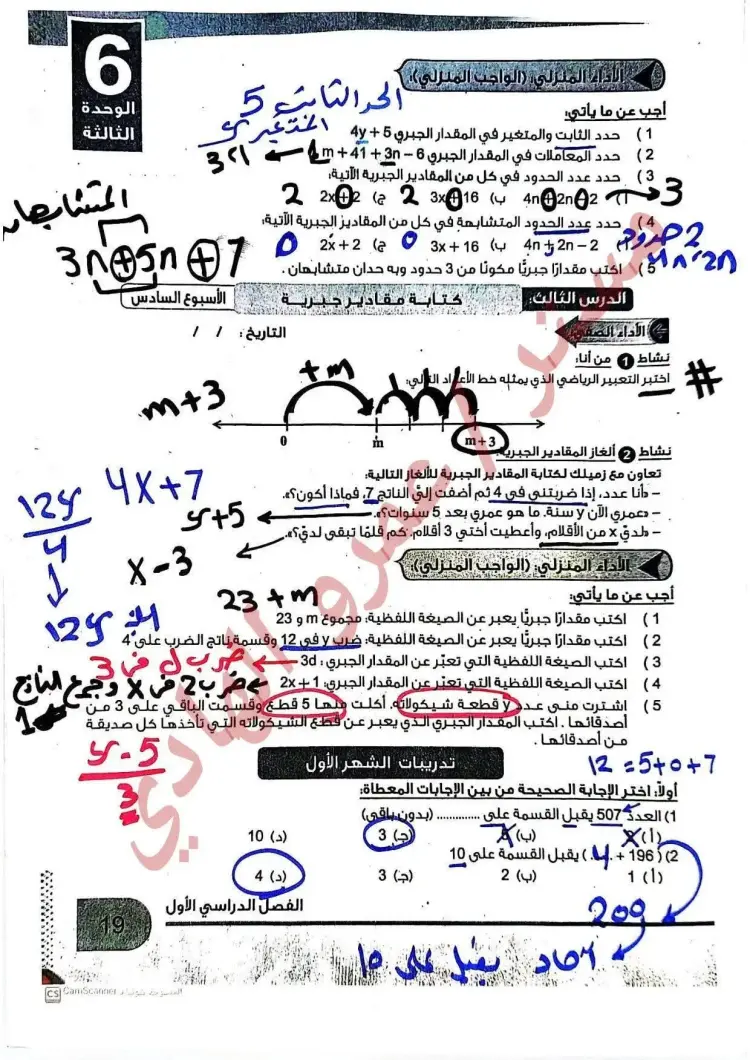 6
الوحدة
الثالثة
الأداء المنزلي: (الواجب المنزلي):
الحد الثابت 5
أجب عن ما يأتي:
المتغير y
1 ) حدد الثابت والمتغير في المقدار الجبري 4y + 5
2 ) حدد المعاملات في المقدار الجبري 1m + 41 + 3n − 6
3 ) حدد عدد الحدود في كل من المقادير الجبرية الآتية:
أ) 4n + 2n − 2 ب) 3x + 16 ج) 2x + 2
3
2
2
4 ) حدد عدد الحدود المتشابهة في كل من المقادير الجبرية الآتية:
أ) 4n + 2n − 2 ب) 3x + 16 ج) 2x + 2
2 حدود
4n , 2n
0
0
5 ) اكتب مقدارًا جبريًا مكونًا من 3 حدود وبه حدان متشابهان.
3n + 5n + 7
الدرس الثالث: كتابة مقادير جبرية الأسبوع السادس
التاريخ: / /
نشاط 1 من أنا:
اختبر التعبير الرياضي الذي يمثله خط الأعداد التالي:
#
+m
m+3
0 m m+3
نشاط 2 ألغاز المقادير الجبرية:
تعاون مع زميلك لكتابة المقادير الجبرية للألغاز التالية:
– «أنا عدد، إذا ضربتني في 4 ثم أضفت إلي الناتج 7، فماذا أكون؟».
4x+7
– «عمري الآن y سنة. ما هو عمري بعد 5 سنوات؟».
y+5
– «لديّ x من الأقلام، وأعطيت أختي 3 أقلام. كم قلمًا تبقى لديّ؟».
x − 3
12y
4
الأداء المنزلي: (الواجب المنزلي):
أجب عن ما يأتي:
23 + m
1 ) اكتب مقدارًا جبريًا يعبر عن الصيغة اللفظية: مجموع m و 23
2 ) اكتب مقدارًا جبريًا يعبر عن الصيغة اللفظية: ضرب y في 12 وقسمة ناتج الضرب على 4
12y ÷ 4
3 ) اكتب الصيغة اللفظية التي تعبّر عن المقدار الجبري: 3d
4 ) اكتب الصيغة اللفظية التي تعبّر عن المقدار الجبري: 2x + 1
ضرب 2 في x وجمع الناتج
1
5 ) اشترت منى عدد y قطعة شيكولاته. أكلت منها 5 قطع وقسمت الباقي على 3 من
أصدقائها . اكتب المقدار الجبري الذي يعبر عن قطع الشيكولاته التي تأخذها كل صديقة
من أصدقائها .
y - 5
3
تدريبات الشهر الأول
12 = 5+0+7
أولاً: اختر الإجابة الصحيحة من بين الإجابات المعطاة:
1) العدد 507 يقبل القسمة على .............. (بدون باقي)
(أ) 2 (ب) 5 (ج) 3 (د) 10
2) (196 + 4) يقبل القسمة على 10
(أ) 1 (ب) 2 (ج) 3 (د) 4
200
الفصل الدراسي الأول
19
احاد يقبل على 10
CS CamScanner
مستر / عمرو الهادي